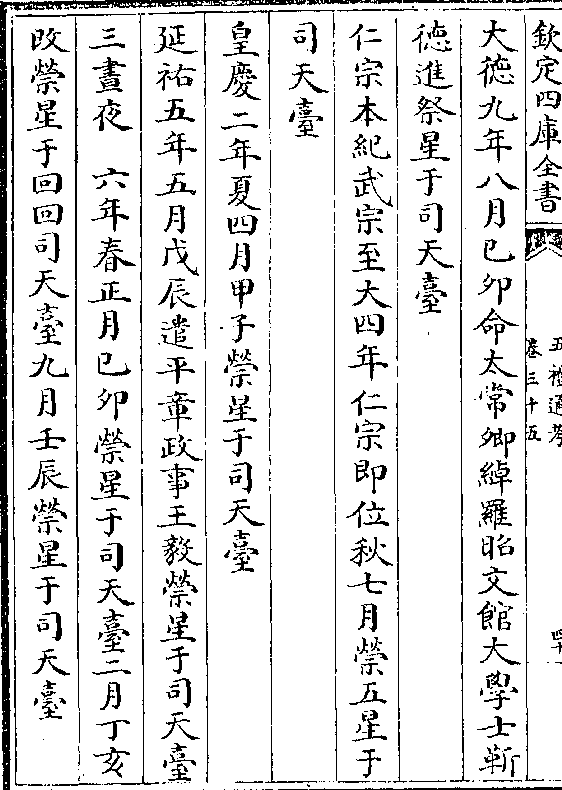 欽定四庫全書
五禮通考
卷三十五
四十一
大德九年八月已卯命太常卿綽羅昭文館大學士靳
德進祭星于司天臺
仁宗本紀武宗至大四年仁宗即位秋七月禜五星于
司天臺
皇慶二年夏四月甲子禜星于司天臺
延祐五年五月戊辰遣平章政事王毅禜星于司天臺
三晝夜 六年春正月已卯禜星于司天臺二月丁亥
改禜星于回回司天臺九月壬辰禜星于司天臺